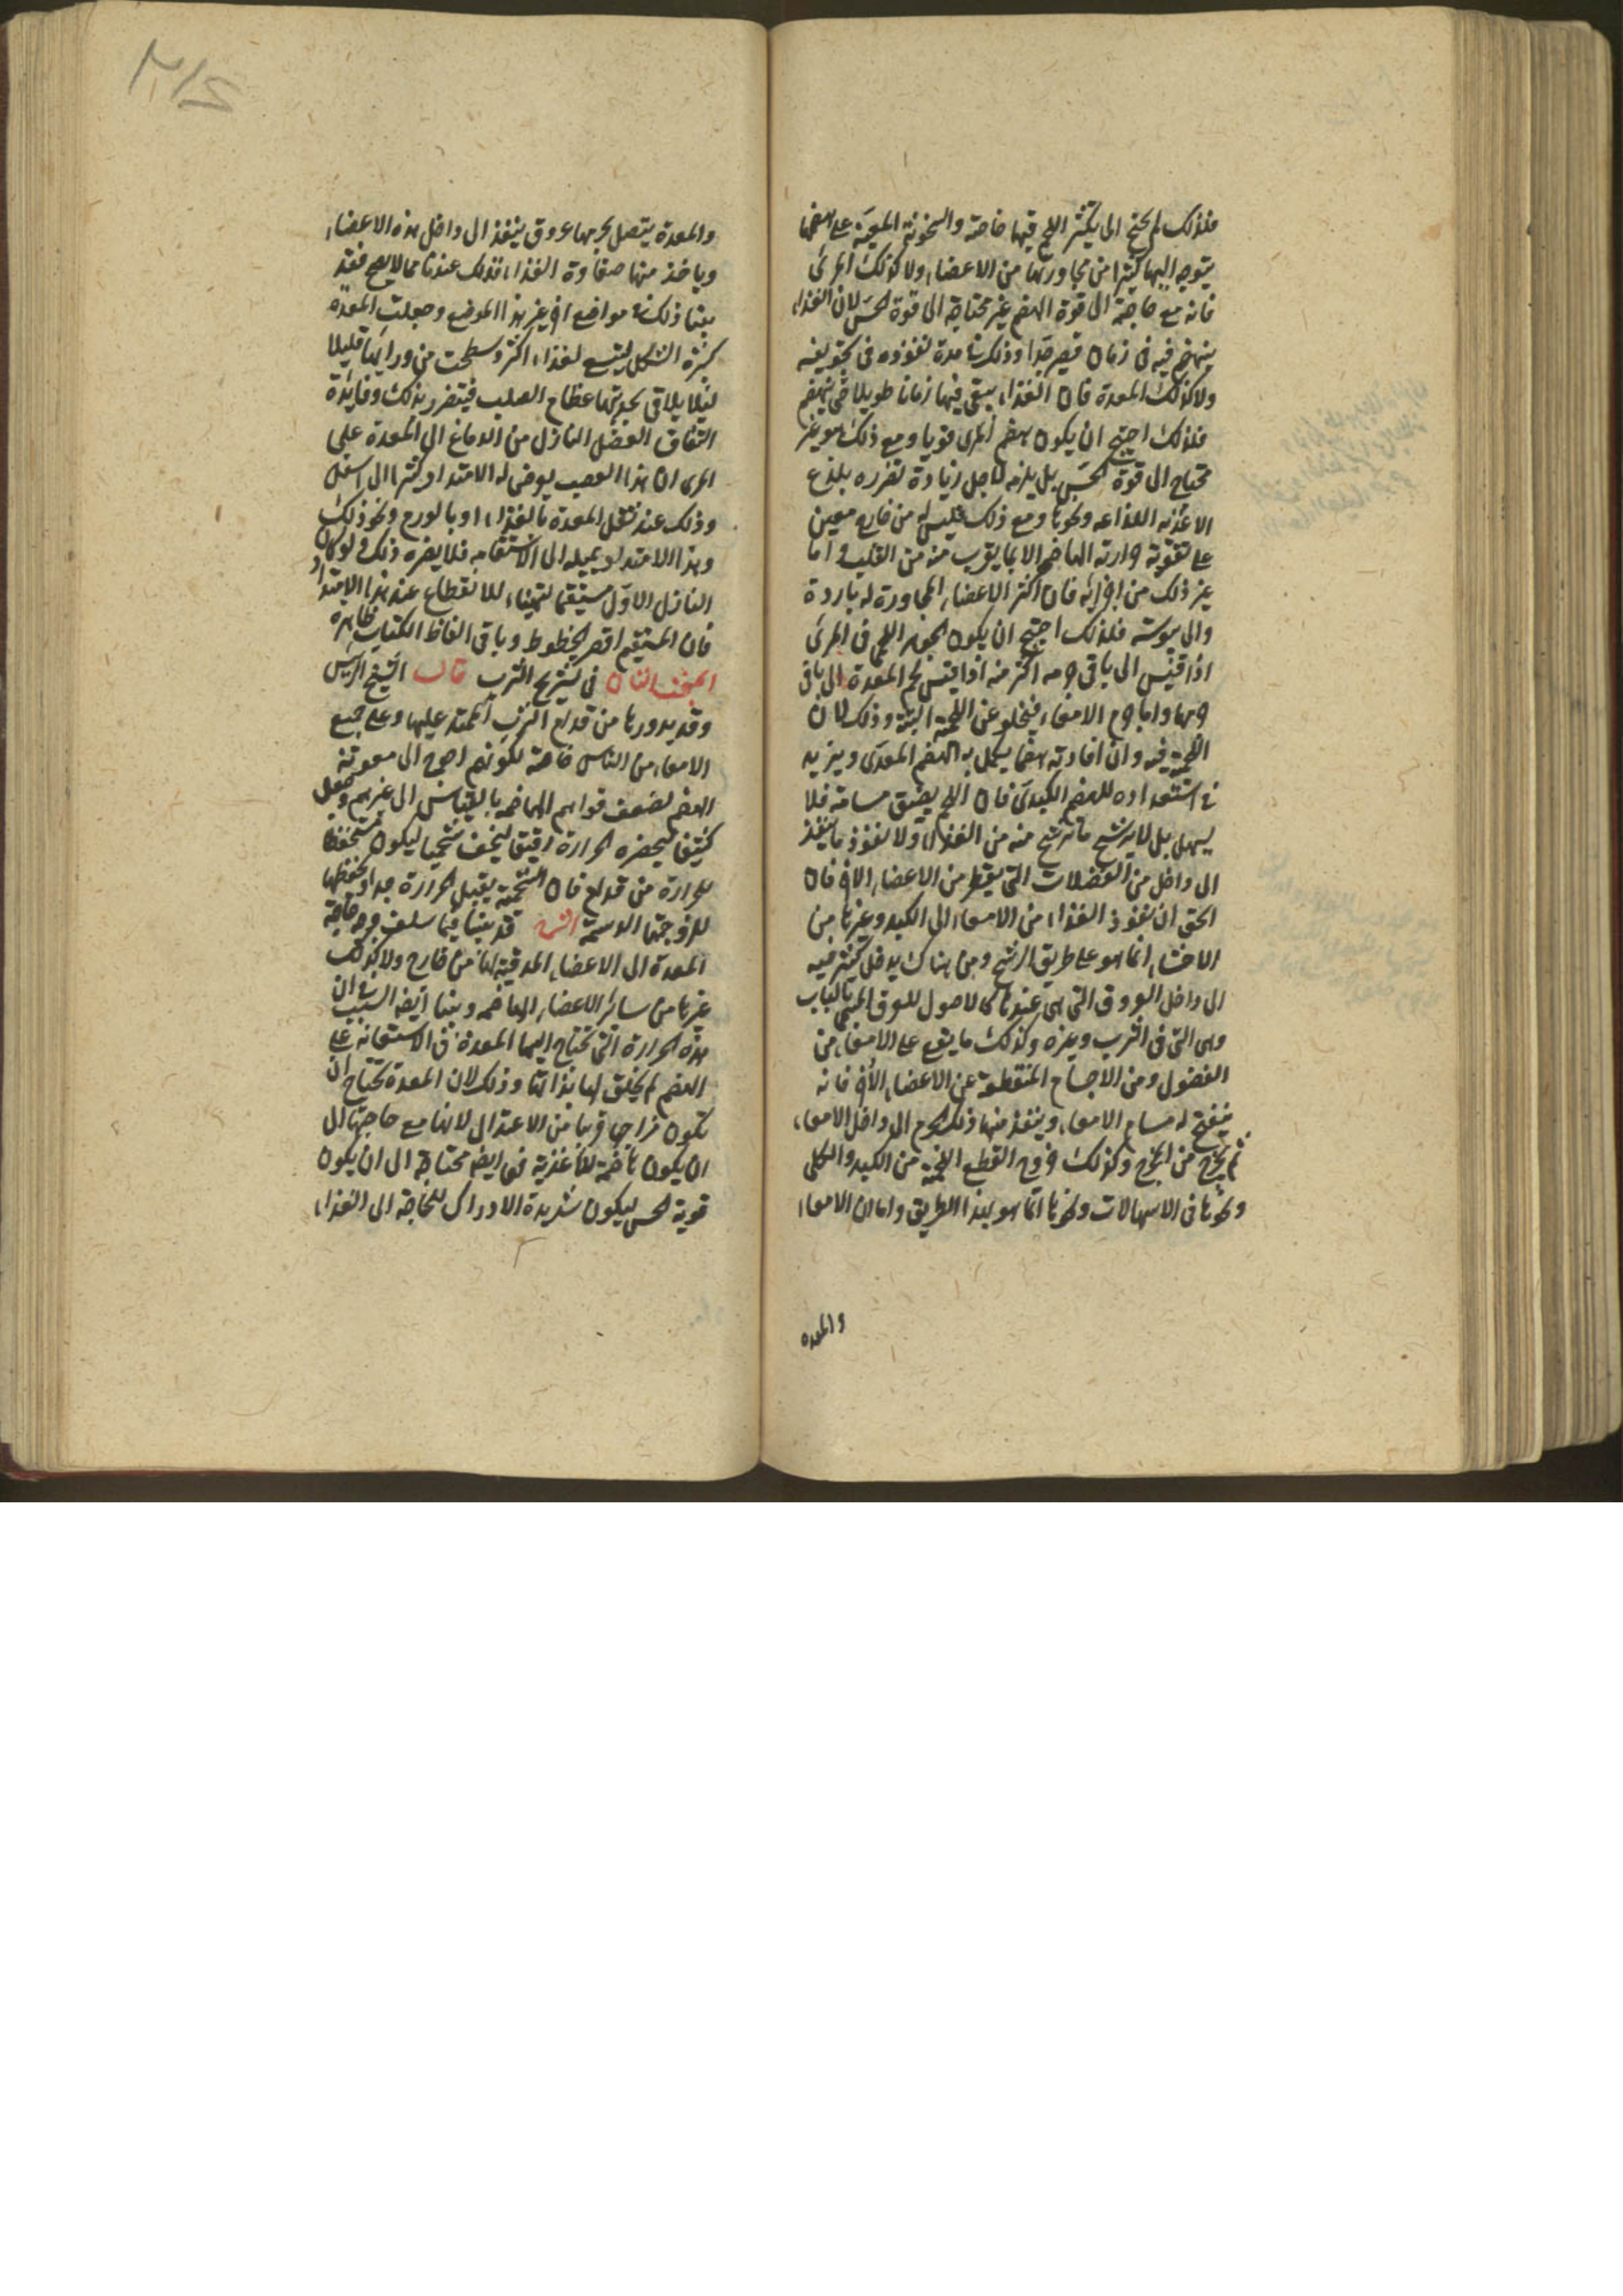 فلذلك لم يحتج الى تكثر اللحم فيها خاصة والسخونة المعينة على هضمها
يتوجه اليها كثيرا من مجاورتها من الاعضاء ولا كذلك المرئ
فانه مع حاجته الى قوة الهضم غير محتاجة الى قوة الحس لان الغذاء
ينهضم فيه فى زمان قصير جدا وذلك مدة نفوذه فى تجويفه
ولا كذلك المعدة فان الغذاء يبقى فيها زمانا طويلا حتى ينهضم
فلذلك احتيج ان يكون هضم المرى قويا ومع ذلك هو غير
محتاج الى قوة الحس بل يلزمه لاجل زيادة تضرره بلذع
الاغذية اللذاعه ونحوها ومع ذلك فليس له من خارج معين
على تقوية حرارته الهاضمة الا بما يقرب منه من القلب واما
غير ذلك من اجزائه فان اكثر الاعضاء المجاورة له باردة
والى يبوسة فلذلك احتيج ان يكون الجوهر اللحمى فى المرئ
اذا قيس الى باقى جرمه اكثر منه اذا قيس لحم المعدة الى باقى
جرمها واما جرم الامعاء فيخلو عن اللحمية البتة وذلك لان
اللحمية فيه وان افادته هضما يكمل به الهضم المعدى ويزيد
فى استعداده للهضم الكبدى فان اللحم يضيق مسامه فلا
يسهل بل لا يترشح ما يترشح منه من الغذاء ولا نفوذ ما ينفذ
الى داخل من الفضلات التى يسقط من الاعضاء الاخر فان
الحق ان نفوذ الغذاء من الامعاء الى الكبد وغيرها من
الاحشاء انما هو على طريق الرشح ومن هناك يدخل كثير منه
الى داخل العروق التى هى عندنا كالاصول للعرق المسمى بالباب
وهى التى فى الثرب وغيره وكذلك ما يقع على الامعاء من
الفضول ومن الاجسام المنقطعة عن الاعضاء الاخر فانه
ينفتح له مسام الامعاء وينفذ منها ذلك الجرم الى داخل الامعاء
ثم يخرج من المخرج وكذلك خروج القطع اللحمية من الكبد والكلى
ونحوها فى الاسهالات ونحوها انما هو بهذا الطريق واما ان الامعاء
والمعده
والمعدة يتصل بجرمها عروق ينفذ الى داخل هذه الاعضاء
وياخذ منها صفاوة الغذاء فذلك عندنا مما لا يصح فقد
بينا ذلك فى مواضع اخر غير هذا الموضع وجعلت المعده
كرية الشكل ليتسع لغذاء اكثر وسطحت من ورائها قليلا
ليلا يلاقى بحدبتها عظام الصلب فيتضرر بذلك وفايدة
التفاف العضل النازل من الدماغ الى المعدة على
المرى ان هذا العصب يعرض له الامتداد كثيرا الى اسفل
وذلك عند ثقل المعدة بالغذاء او بالورم ونحو ذلك
وهذا الامتداد يميله الى الاستقامه فلا يضره ذلك ولو كان
النازل الاول مستقيما لتهيئا للانقطاع عند هذا الامتداد
فان المستقيم اقصر الخطوط وباقى الفاظ الكتاب ظاهره
المبحث الثانى فى تشريح الثرب قال الشيخ الرئيس
وقد يدور بها من قدام الثرب الممتد عليها وعلى جميع
الامعاء من الناس خاصة لكونهم احوج الى معونة
الهضم لضعف قواهم الهاضمه بالقياس الى غيرهم وجعل
كثيفا ليحصره الحرارة رقيقا ليخف شحميا ليكون مستحفظا
للحرارة من قدام فان الشحمية يقبل الحرارة جدا ويحفظها
للزوجتها الدسمة الشرح قد بينا فيما سلف وجه حاجة
المعدة الى الاعضاء المدفية لها من خارج ولا كذلك
غيرها من سائر الاعضاء الهاضمه وبينا ايضا السبب فى ان
هذه الحرارة التى تحتاج اليها المعدة فى الاستعانة على
الهضم لم يخلق لها بذاتها وذلك لان المعدة تحتاج ان
تكون مزاجها قريبا من الاعتدال لانها مع حاجتها الى
ان يكون هاضمة للاغذية فهى ايضا محتاجة الى ان يكون
قوية الحس ليكون شديدة الادراك للحاجة الى الغذاء